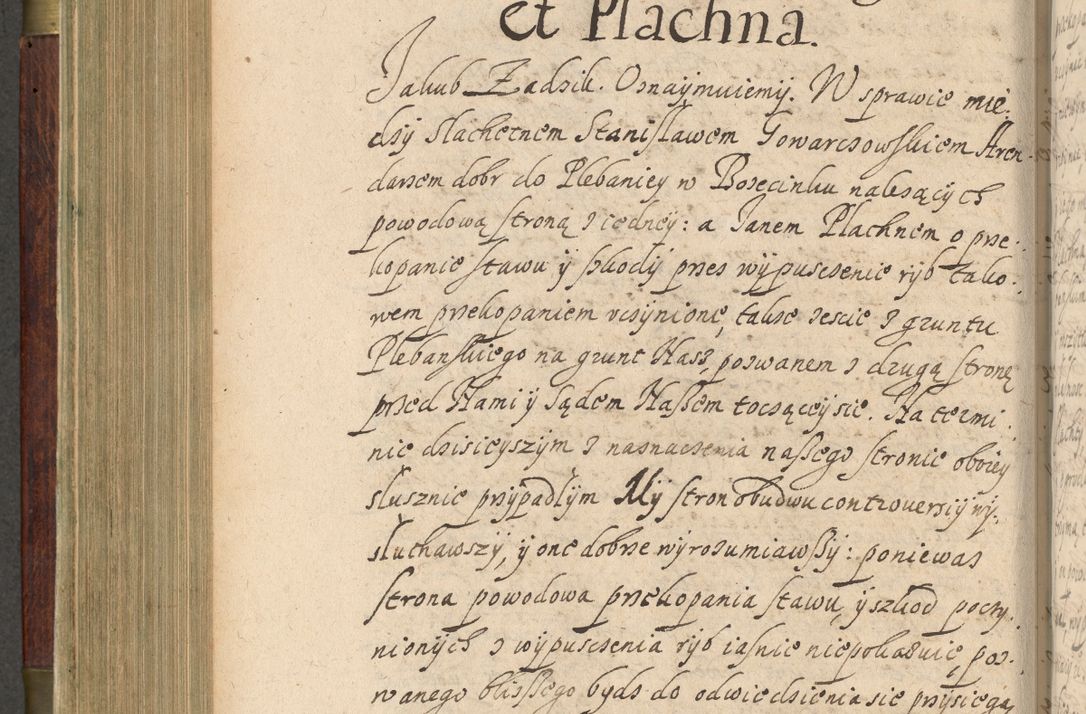 et Plachna.
Jakub Zadzik. Oznaÿmuiemÿ. W sprawie mie:
dzÿ Slachetnem Stanisławem Gowarczowskiem Aren
darzem dobr do Plebaniey w Bozecinku nalezących
powodową stroną z iedneÿ: a Janem Plachnem o prze:
kopanie stawu ÿ szkodÿ przes wÿpusczenie rÿb tako:
wem przekopaniem vczÿnionę, takze iescie z gruntu
Plebanskiego na grunt Nasz, pozwanem z drugą stronę
przed Nami ÿ Sądem Naszem toczącey sie. Na termi:
nie dzisieyszÿm z naznaczenia naszego stronie oboiey
slusznie przÿpadłÿm Mÿ stron obudwu controuersiÿ wÿ:
słuchawszÿ, ÿ one dobrze wÿrozumiawszÿ: poniewaz
strona powodowa przekopania stawu, ÿ szkod poczÿ:
nionÿch z wÿpusczenia rÿb iasnie niepokazuie, poz:
wanego blizszego bydz do odwiedzienia sie przÿsięgą